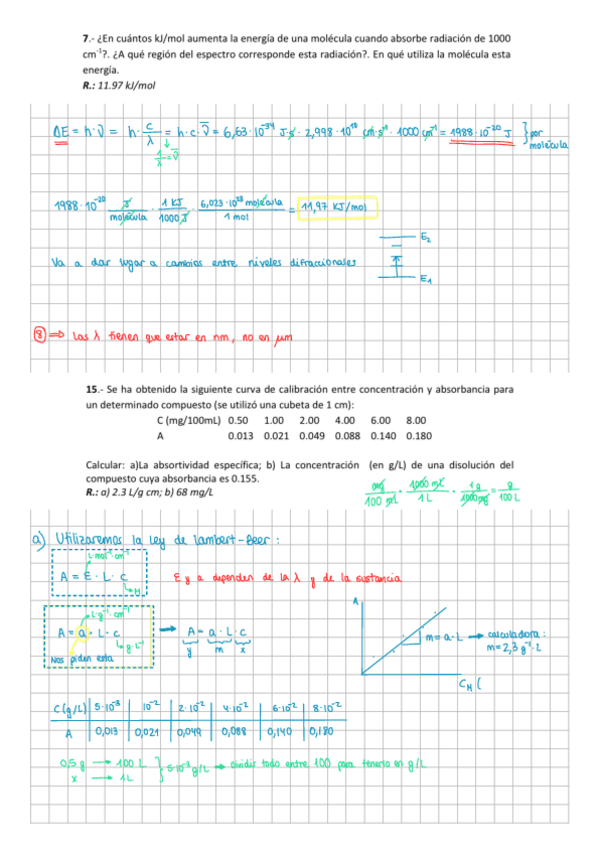 7.- ¿En cuántos kJ/mol aumenta la energía de una molécula cuando absorbe radiación de 1000
cm⁻¹?. ¿A qué región del espectro corresponde esta radiación?. En qué utiliza la molécula esta
energía.
R.: 11.97 kJ/mol
ΔE = h·ν = h· c/λ = h·c·ν̅ = 6,63·10⁻³⁴ J·s · 2,998·10¹⁰ cm·s⁻¹ · 1000 cm⁻¹ = 1988·10⁻²⁰ J } por molécula
1/λ = ν̅
1988·10⁻²⁰ J/molécula · 1 KJ/1000 J · 6,023·10²³ molécula/1 mol = 11,97 KJ/mol
E₂
Va a dar lugar a cambios entre niveles difraccionales
E₁
⑧ ⇒ Las λ tienen que estar en nm, no en μm
15.- Se ha obtenido la siguiente curva de calibración entre concentración y absorbancia para
un determinado compuesto (se utilizó una cubeta de 1 cm):
C (mg/100mL) 0.50 1.00 2.00 4.00 6.00 8.00
A 0.013 0.021 0.049 0.088 0.140 0.180
Calcular: a)La absortividad específica; b) La concentración (en g/L) de una disolución del
compuesto cuya absorbancia es 0.155.
R.: a) 2.3 L/g cm; b) 68 mg/L
mg/100 mL · 1000 mL/1 L · 1 g/1000 mg = g/100 L
a) Utilizaremos la ley de Lambert-Beer:
L·mol⁻¹·cm⁻¹
A = E · L · c
M
E y a dependen de la λ y de la sustancia
L·g⁻¹·cm⁻¹
A = a · L · c
g·L⁻¹
Nos piden esta
→ A = a · L · c
y m x
A
m = a·L → calculadora:
m = 2,3 g⁻¹·L
C_M (
C(g/L) 5·10⁻³ 10⁻² 2·10⁻² 4·10⁻² 6·10⁻² 8·10⁻²
A 0,013 0,021 0,049 0,088 0,140 0,180
0,5 g → 100 L
x → 1 L
} 5·10⁻³ g/L → dividir todo entre 100 para tenerlo en g/L